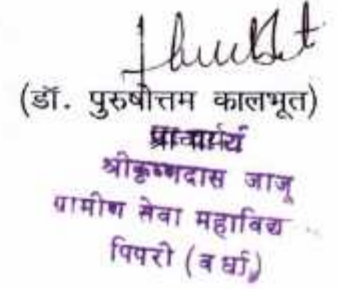 (डॉ. पुरुषोत्तम कालभूत)
प्राचार्य
श्रीकृष्णदास जाजू
ग्रामीण सेवा महाविद्य
पिपरी (वर्धा)